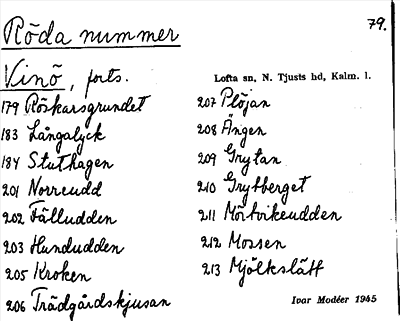 Röda nummer
79.
Vinö, forts.
Lofta sn, N. Tjusts hd, Kalm. l.
179 Röskarsgrundet
183 Långalyck
184 Stuthagen
201 Norreudd
202 Fälludden
203 Hundudden
205 Kroken
206 Trädgårdskjusan
207 Plöjan
208 Ängen
209 Grytan
210 Grytberget
211 Mörtvikeudden
212 Mossen
213 Mjölkslätt
Ivar Modéer 1945